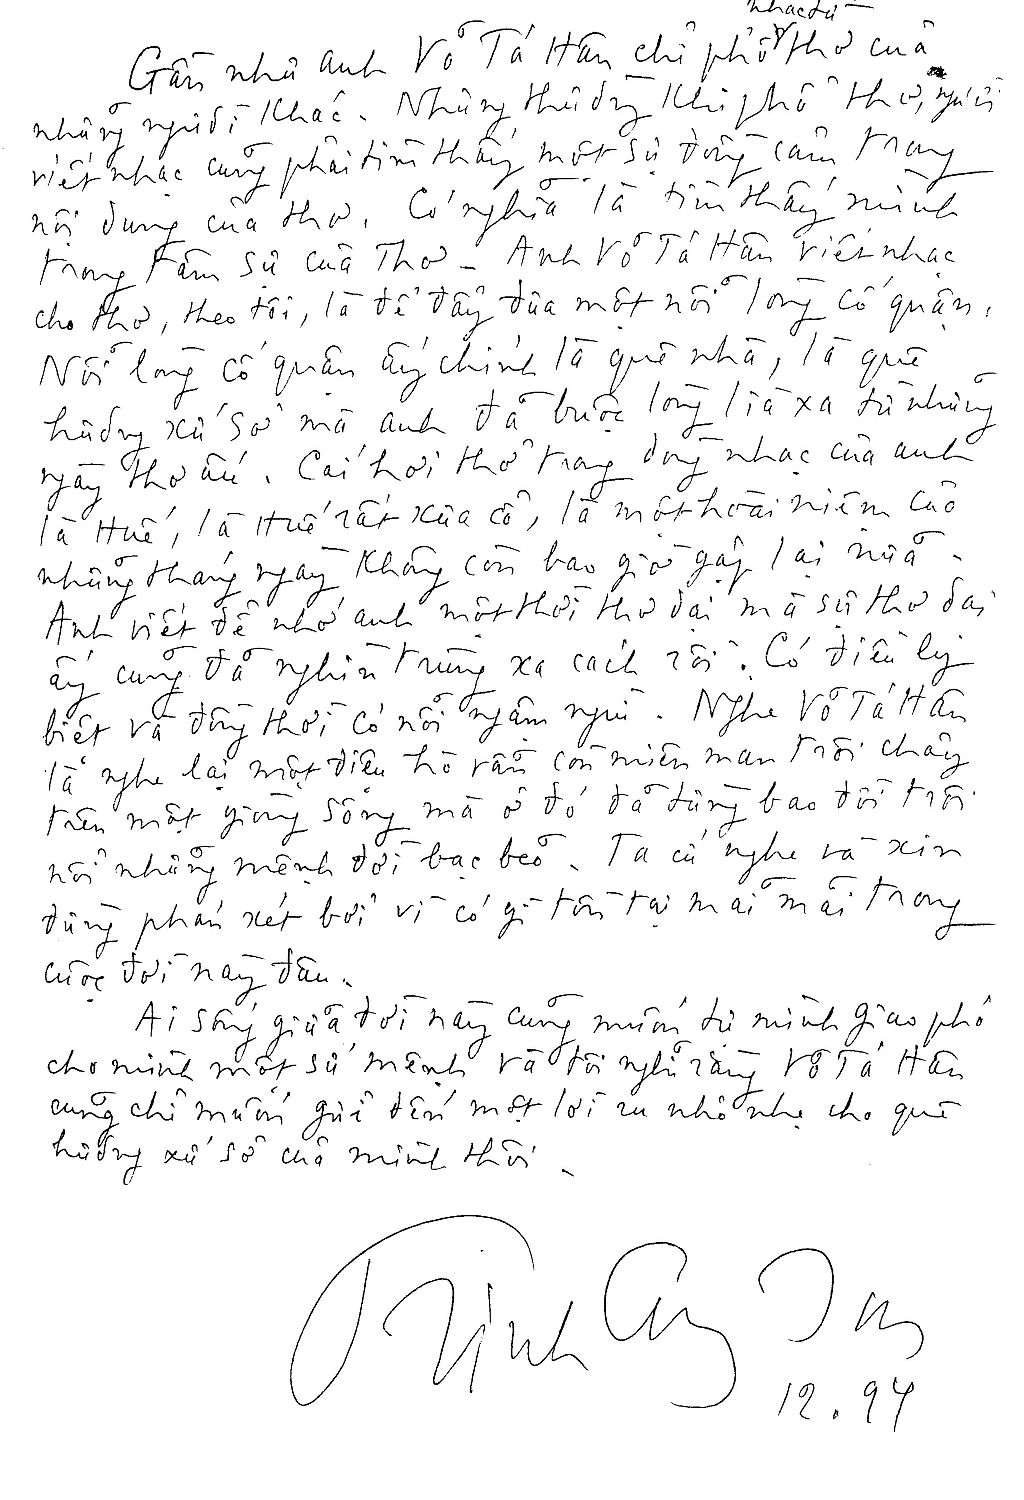 nhạc từ
Gần như anh Võ Tá Hân chỉ phổ thơ của
những người khác. Những thường khi phổ thơ, người
viết nhạc cũng phải tìm thấy một sự đồng cảm trong
nội dung của thơ. Có nghĩa là tìm thấy mình
trong tâm sự của Thơ. Anh Võ Tá Hân viết nhạc
cho thơ, theo tôi, là để đẩy đưa một nỗi lòng cố quận.
Nỗi lòng cố quận ấy chính là quê nhà, là quê
hương xứ sở mà anh đã buộc lòng lìa xa từ những
ngày thơ ấu. Cái hơi thở trong dòng nhạc của anh
là Huế, là Huế rất xưa cũ, là một hoài niệm của
những tháng ngày không còn bao giờ gặp lại nữa.
Anh viết để nhớ anh một thời thơ dại mà sự thơ dại
ấy cũng đã nghìn trùng xa cách rồi. Có điều ly
biệt và đồng thời có nỗi ngậm ngùi. Nghe Võ Tá Hân
là nghe lại một điệu hò vẫn còn miên man trôi chảy
trên một giòng sông mà ở đó đã từng bao đời trôi
nổi những mệnh đời bạc bẽo. Ta cứ nghe và xin
đừng phán xét bởi vì có gì tồn tại mãi mãi trong
cuộc đời này đâu.
Ai sống giữa đời này cũng muốn tự mình giao phó
cho mình một sứ mệnh và tôi nghĩ rằng Võ Tá Hân
cũng chỉ muốn gửi đến một lời ru nhỏ nhẹ cho quê
hương xứ sở của mình thôi.
Trịnh Công Sơn
12.94